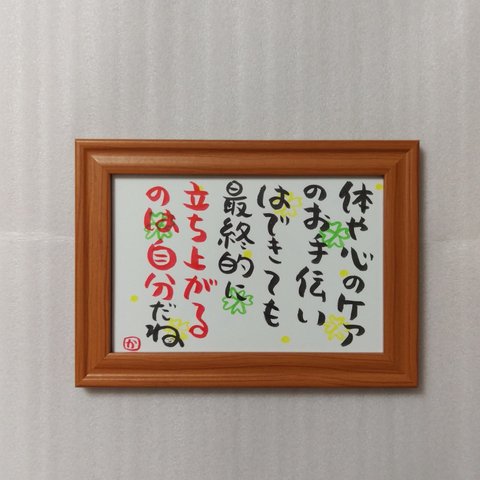 体や心のケア
のお手伝い
はできても
最終的に
立ち上がる
のは自分だね
か